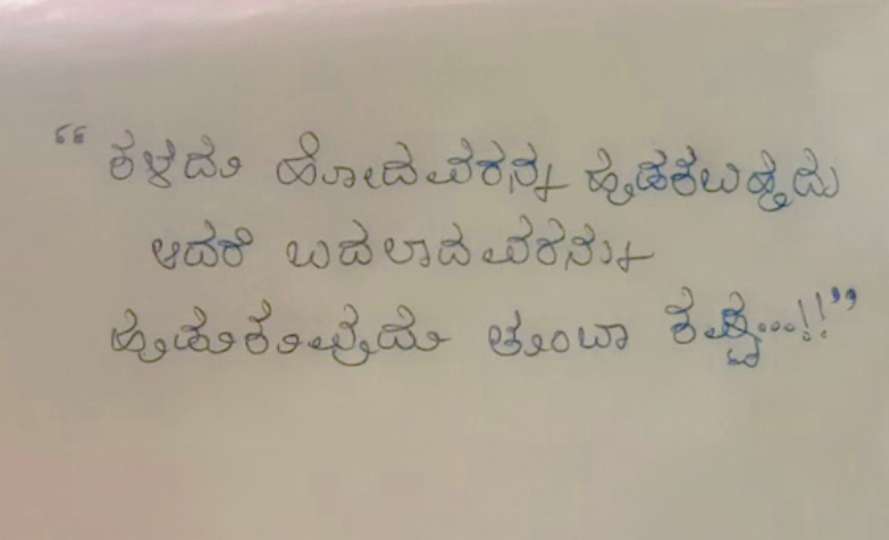 “ ಕಳೆದು ಹೋದವರನ್ನು ಹುಡುಕಬಹುದು
ಆದರೆ ಬದಲಾದವರನ್ನು
ಹುಡುಕುವುದು ತುಂಬಾ ಕಷ್ಟ...!!”